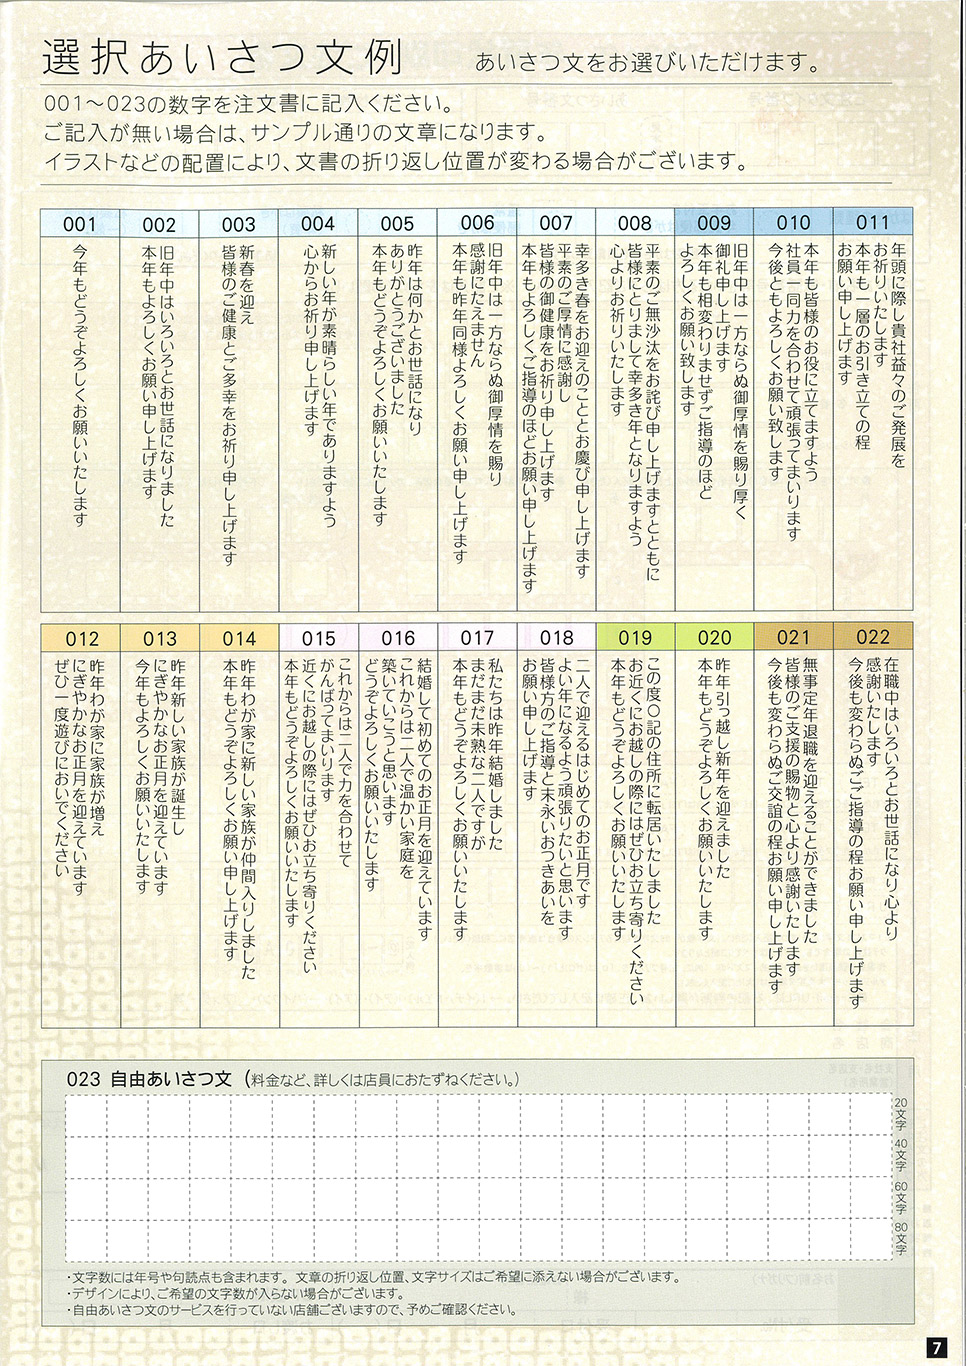 選択あいさつ文例
あいさつ文をお選びいただけます。
001～023の数字を注文書に記入ください。
ご記入が無い場合は、サンプル通りの文章になります。
イラストなどの配置により、文書の折り返し位置が変わる場合がございます。
001
今年もどうぞよろしくお願いいたします
002
旧年中はいろいろとお世話になりました
本年もよろしくお願い申し上げます
003
新春を迎え
皆様のご健康とご多幸をお祈り申し上げます
004
新しい年が素晴らしい年でありますよう
心からお祈り申し上げます
005
昨年は何かとお世話になり
ありがとうございました
本年もどうぞよろしくお願いいたします
006
旧年中は一方ならぬ御厚情を賜り
感謝にたえません
本年も昨年同様よろしくお願い申し上げます
007
幸多き春をお迎えのこととお慶び申し上げます
平素のご厚情に感謝し
皆様の御健康をお祈り申し上げます
本年もよろしくご指導のほどお願い申し上げます
008
平素のご無沙汰をお詫び申し上げますとともに
皆様にとりまして幸多き年となりますよう
心よりお祈りいたします
009
旧年中は一方ならぬ御厚情を賜り厚く
御礼申し上げます
本年も相変わりませずご指導のほど
よろしくお願い致します
010
本年も皆様のお役に立てますよう
社員一同力を合わせて頑張ってまいります
今後ともよろしくお願い致します
011
年頭に際し貴社益々のご発展を
お祈りいたします
本年も一層のお引き立ての程
お願い申し上げます
012
昨年わが家に家族が増え
にぎやかなお正月を迎えています
ぜひ一度遊びにおいでください
013
昨年新しい家族が誕生し
にぎやかなお正月を迎えています
今年もよろしくお願いいたします
014
昨年わが家に新しい家族が仲間入りしました
本年もどうぞよろしくお願い申し上げます
015
これからは二人で力を合わせて
がんばってまいります
近くにお越しの際にはぜひお立ち寄りください
本年もどうぞよろしくお願いいたします
016
結婚して初めてのお正月を迎えています
これからは二人で温かい家庭を
築いていこうと思います
どうぞよろしくお願いいたします
017
私たちは昨年結婚しました
まだまだ未熟な二人ですが
本年もどうぞよろしくお願いいたします
018
二人で迎えるはじめてのお正月です
よい年になるよう頑張りたいと思います
皆様方のご指導と末永いおつきあいを
お願い申し上げます
019
この度〇記の住所に転居いたしました
お近くにお越しの際にはぜひお立ち寄りください
本年もどうぞよろしくお願いいたします
020
昨年引っ越し新年を迎えました
本年もどうぞよろしくお願いいたします
021
無事定年退職を迎えることができました
皆様のご支援の賜物と心より感謝いたします
今後も変わらぬご交誼の程お願い申し上げます
022
在職中はいろいろとお世話になり心より
感謝いたします
今後も変わらぬご指導の程お願い申し上げます
023 自由あいさつ文（料金など、詳しくは店員におたずねください。）
20文字
40文字
60文字
80文字
・文字数には年号や句読点も含まれます。文章の折り返し位置、文字サイズはご希望に添えない場合がございます。
・デザインにより、ご希望の文字数が入らない場合がございます。
・自由あいさつ文のサービスを行っていない店舗ございますので、予めご確認ください。
7